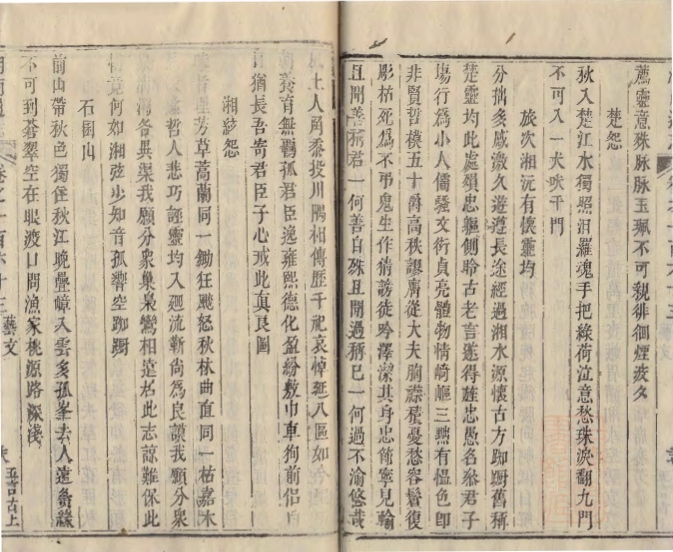 薦靈意殊脉脉玉珮不可親徘徊煙波久
楚怨
秋入楚江水獨照汨羅魂手把綠荷泣意愁珠淚翻九門
不可入一犬吠千門
旅次湘沅有懷靈均
分拙多感激久遊遵長途經過湘水源懷古方踟躕舊稱
楚靈均此處殞忠軀側聆古老言遂得旌忠愚名叅君子
塲行為小人儒騷文衒貞亮體物情崎嶇三黜有慍色即
非賢哲模五十爵高秩謬膺從大夫胸襟積憂愁容鬢復
彫枯死為不弔鬼生作猜謗徒吟澤潔其身忠節寧見輸
且聞善稱君一何善自殊且聞過稱已一何過不渝悠哉
風土人角黍投川隅相傳歷千祀哀悼延八區如今
養育無羈孤君臣逸雍熙德化盈紛敷巾車徇前侶白
日猶長吾寄君臣子心戒此真良圖
湘絃怨
昧者理芳草蒿蘭同一鋤狂飈怒秋林曲直同一枯嘉木
忌深蠹哲人悲巧誣靈均入廻流靳尚為良謨我願分眾
泉清濁各異渠我願分眾巢梟鸞相遠居此志諒難保此
情竟何如湘弦少知音孤響空踟躕
石囷山
前山帶秋色獨往秋江晚疊嶂入雲多孤峯去人遠夤緣
不可到蒼翠空在眼渡口問漁家桃源路深淺
卷之一百六十三 藝文 五言古上